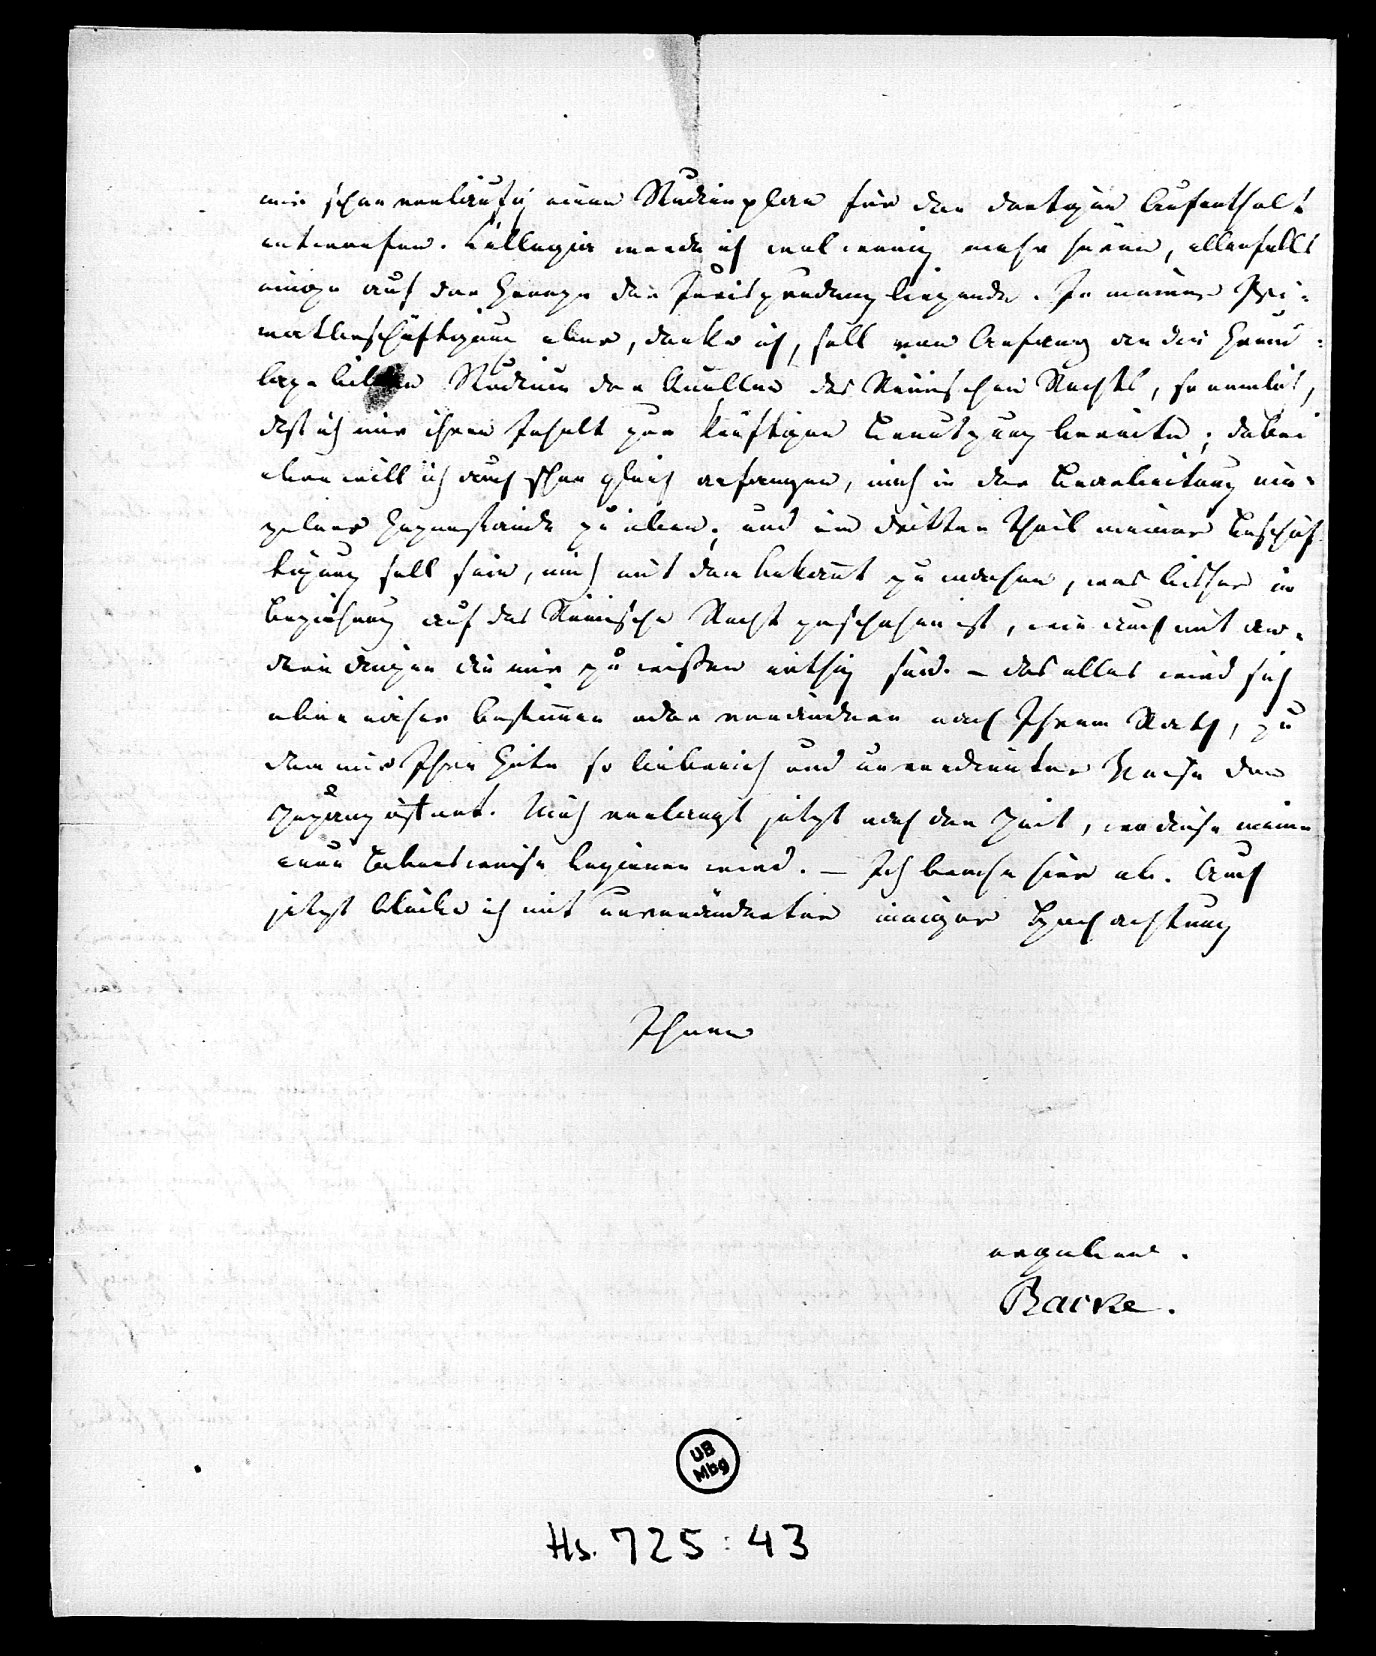 mir schon vorläufig einen Studienplan für den dortigen Aufenthalt
entworfen. Collegia werde ich wol wenig mehr hören, allenfalls
einige auf der Grenze der Jurisprudenz liegende. In meinen Pri-
vatbeschäftigungen aber, denke ich, soll von Anfang an die Grund-
lage bilden Studium der Quellen des Römischen Rechts, so nemlich,
daß ich mir ihren Inhalt zur künftigen Benutzung bereite; dabei
aber will ich auch schon gleich anfangen, mich in der Bearbeitung ein-
zelner Gegenstände zu üben; und ein dritter Theil meiner Beschäf-
tigung soll sein, mich mit dem bekannt zu machen, was bisher in
Beziehung auf das Römische Recht geschehen ist, wie auch mit an-
dern Dingen die mir zu wißen nöthig sind. – Das alles wird sich
aber näher bestimmen oder verändern nach Ihrem Rath, zu
dem mir Ihre Güte so liebreich und unverdienter Weise den
Zugang öffnet. Mich verlangt jetzt nach der Zeit, wo diese meine
neue Lebensweise beginnen wird. – Ich breche hier ab. Auch
jetzt bleibe ich mit unveränderter inniger Hochachtung
Ihnen
ergeben.
UB
Mbg
Hs. 725:43